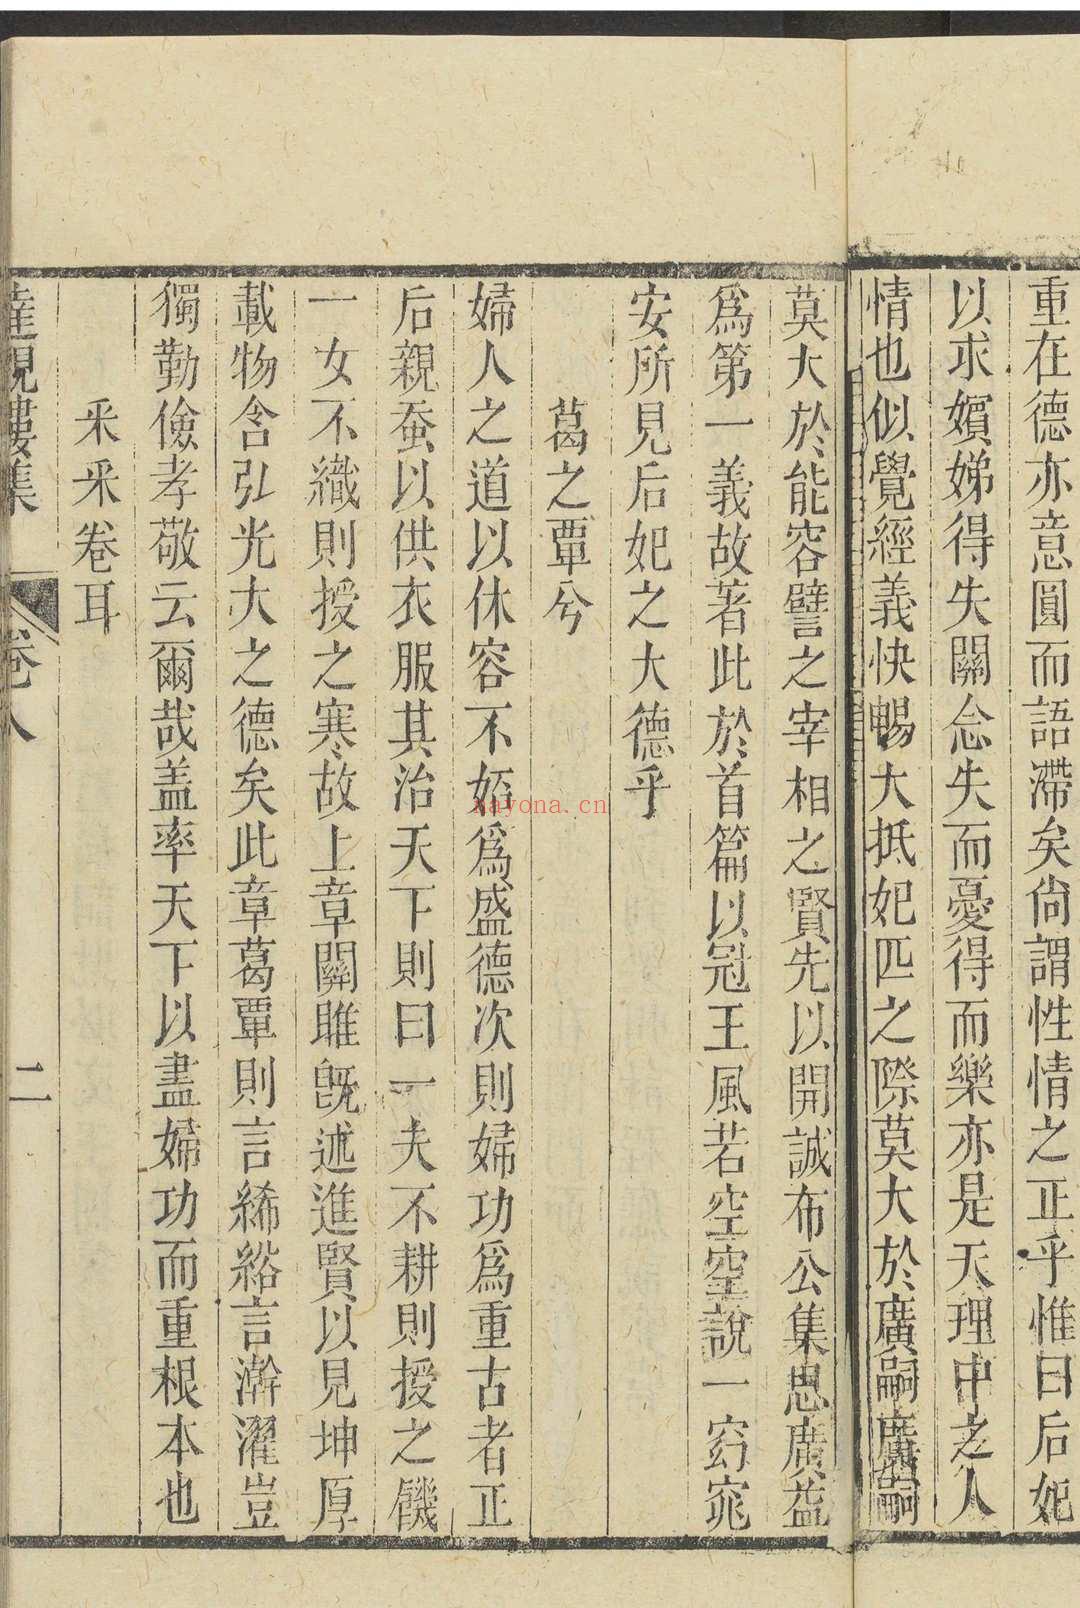 重在德亦意圓而語滯矣尙謂性情之正乎惟曰后妃
以求嬪娣得失關念失而憂得而樂亦是天理中之人
情也似覺經義快暢大抵妃匹之際莫大於廣嗣廣嗣
莫大於能容譬之宰相之賢先以開誠布公集思廣益
爲第一義故著此於首篇以冠王風若空空說一窈窕
安所見后妃之大德乎
葛之覃兮
婦人之道以休容不妬爲盛德次則婦功爲重古者正
后親蚕以供衣服其治天下則曰一夫不耕則授之饑
一女不織則授之寒故上章關雎旣述進賢以見坤厚
載物含弘光大之德矣此章葛覃則言絺綌言澣濯豈
獨勤儉孝敬云爾哉盖率天下以盡婦功而重根本也
采采卷耳
達觀樓集 卷八 二
nayona.cn